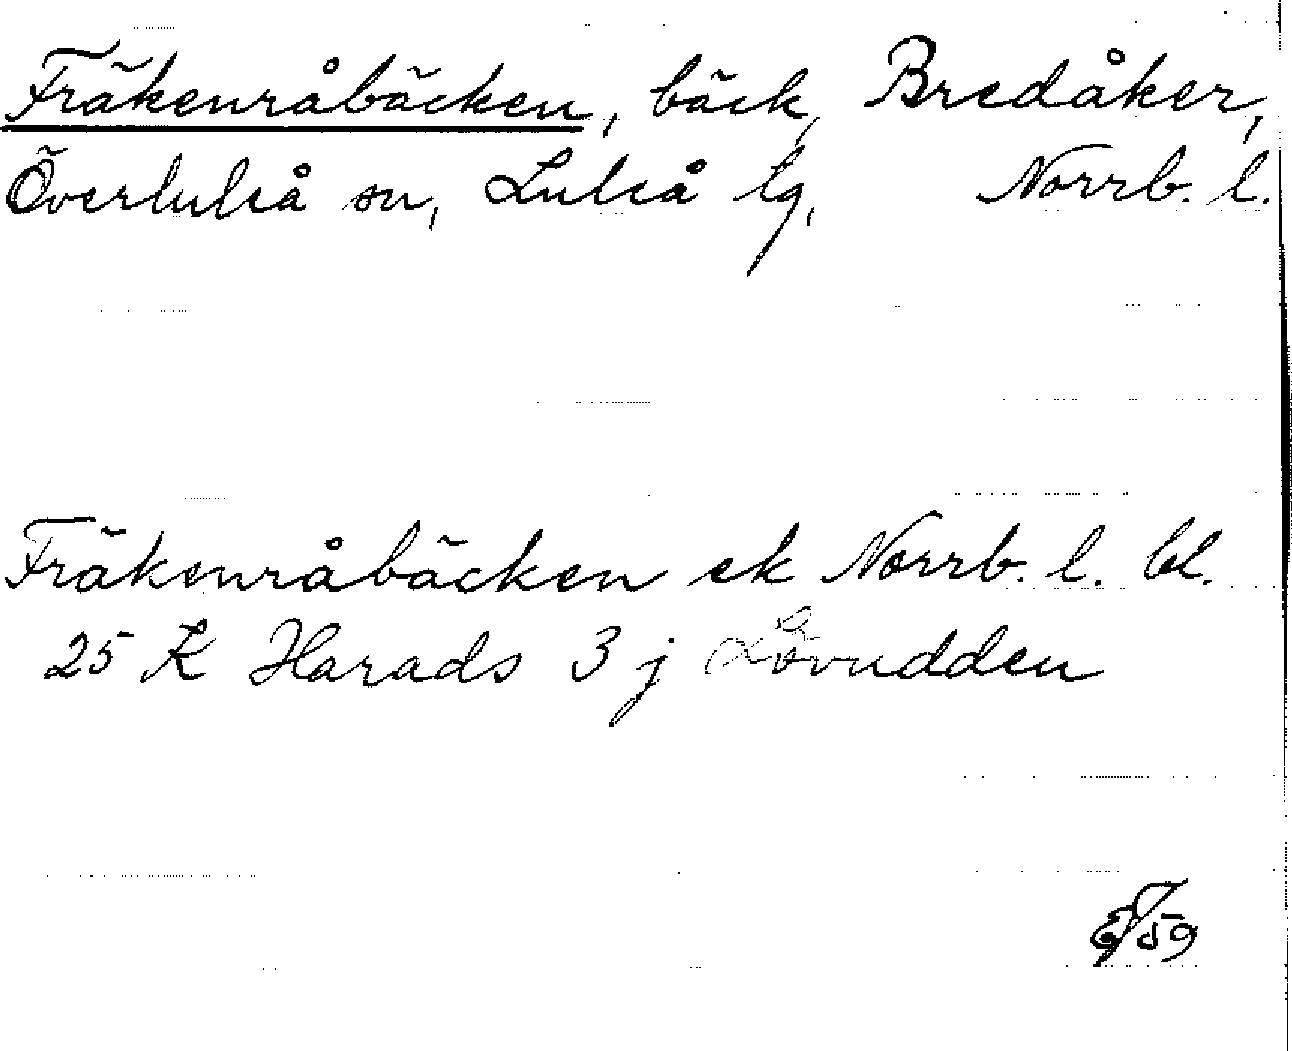 Fräkenråbäcken, bäck, Bredåker,
Överluleå sn, Luleå lg, Norrb. l.
Fräkenråbäcken ek Norrb. l. bl.
25 K Harads 3 j Lövudden